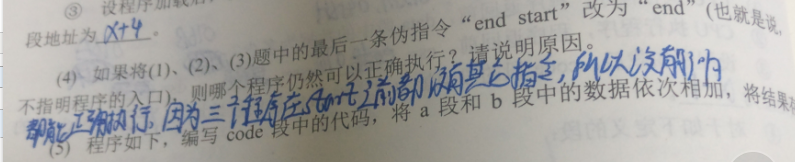 ③ 设程序加载后
段地址为 X+4 。
(4) 如果将(1)、(2)、(3)题中的最后一条伪指令“end start”改为“end”(也就是说,
不指明程序的入口),则哪个程序仍然可以正确执行?请说明原因。
都能正确执行,因为三个程序在start之前都没有其它指令,所以没有影响
(5) 程序如下,编写 code 段中的代码,将 a 段和 b 段中的数据依次相加,将结果